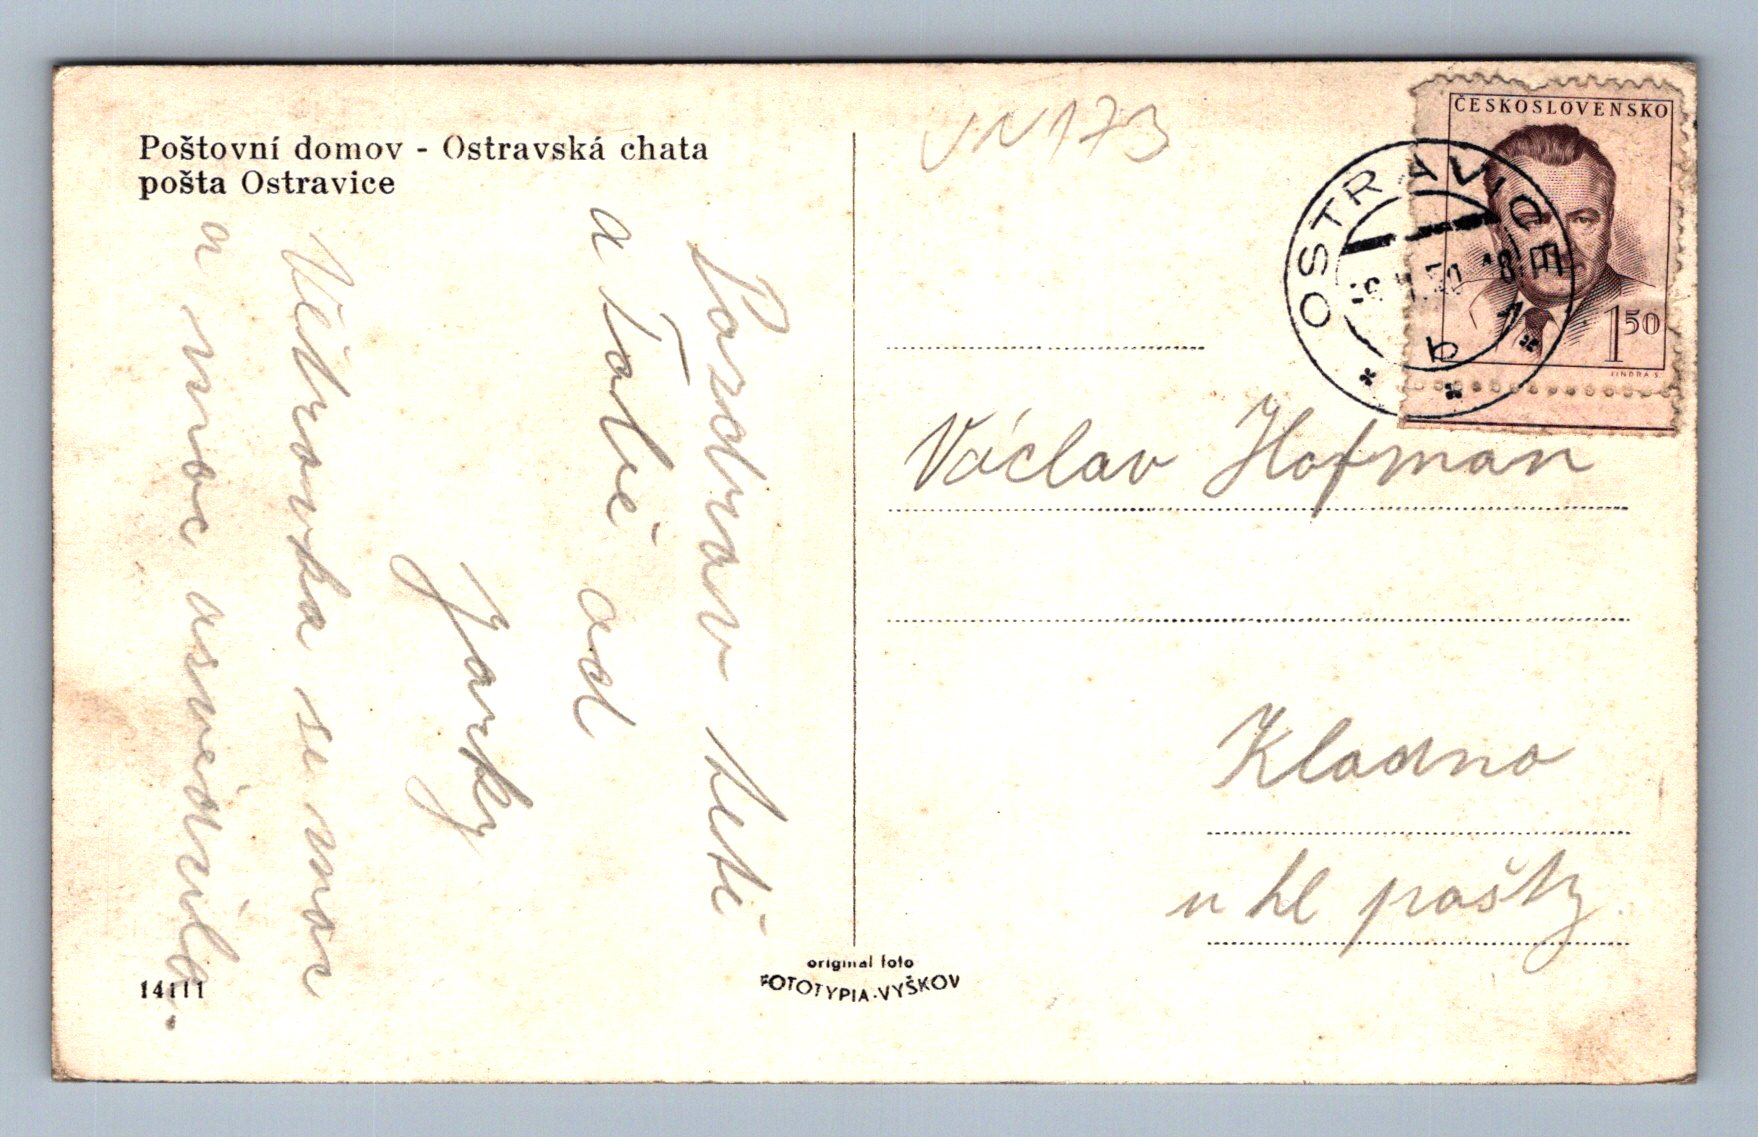 Poštovní domov - Ostravská chata
pošta Ostravice
VN173
ČESKOSLOVENSKO
1 50
JINDRA S.
OSTRAVICE
b
Pozdrav teti
a Tobě od
Jarky
Větrovka se moc
a moc osvědčila.
Václav Hofman
Kladno
u hl pošty
14111
original foto
FOTOTYPIA-VYŠKOV